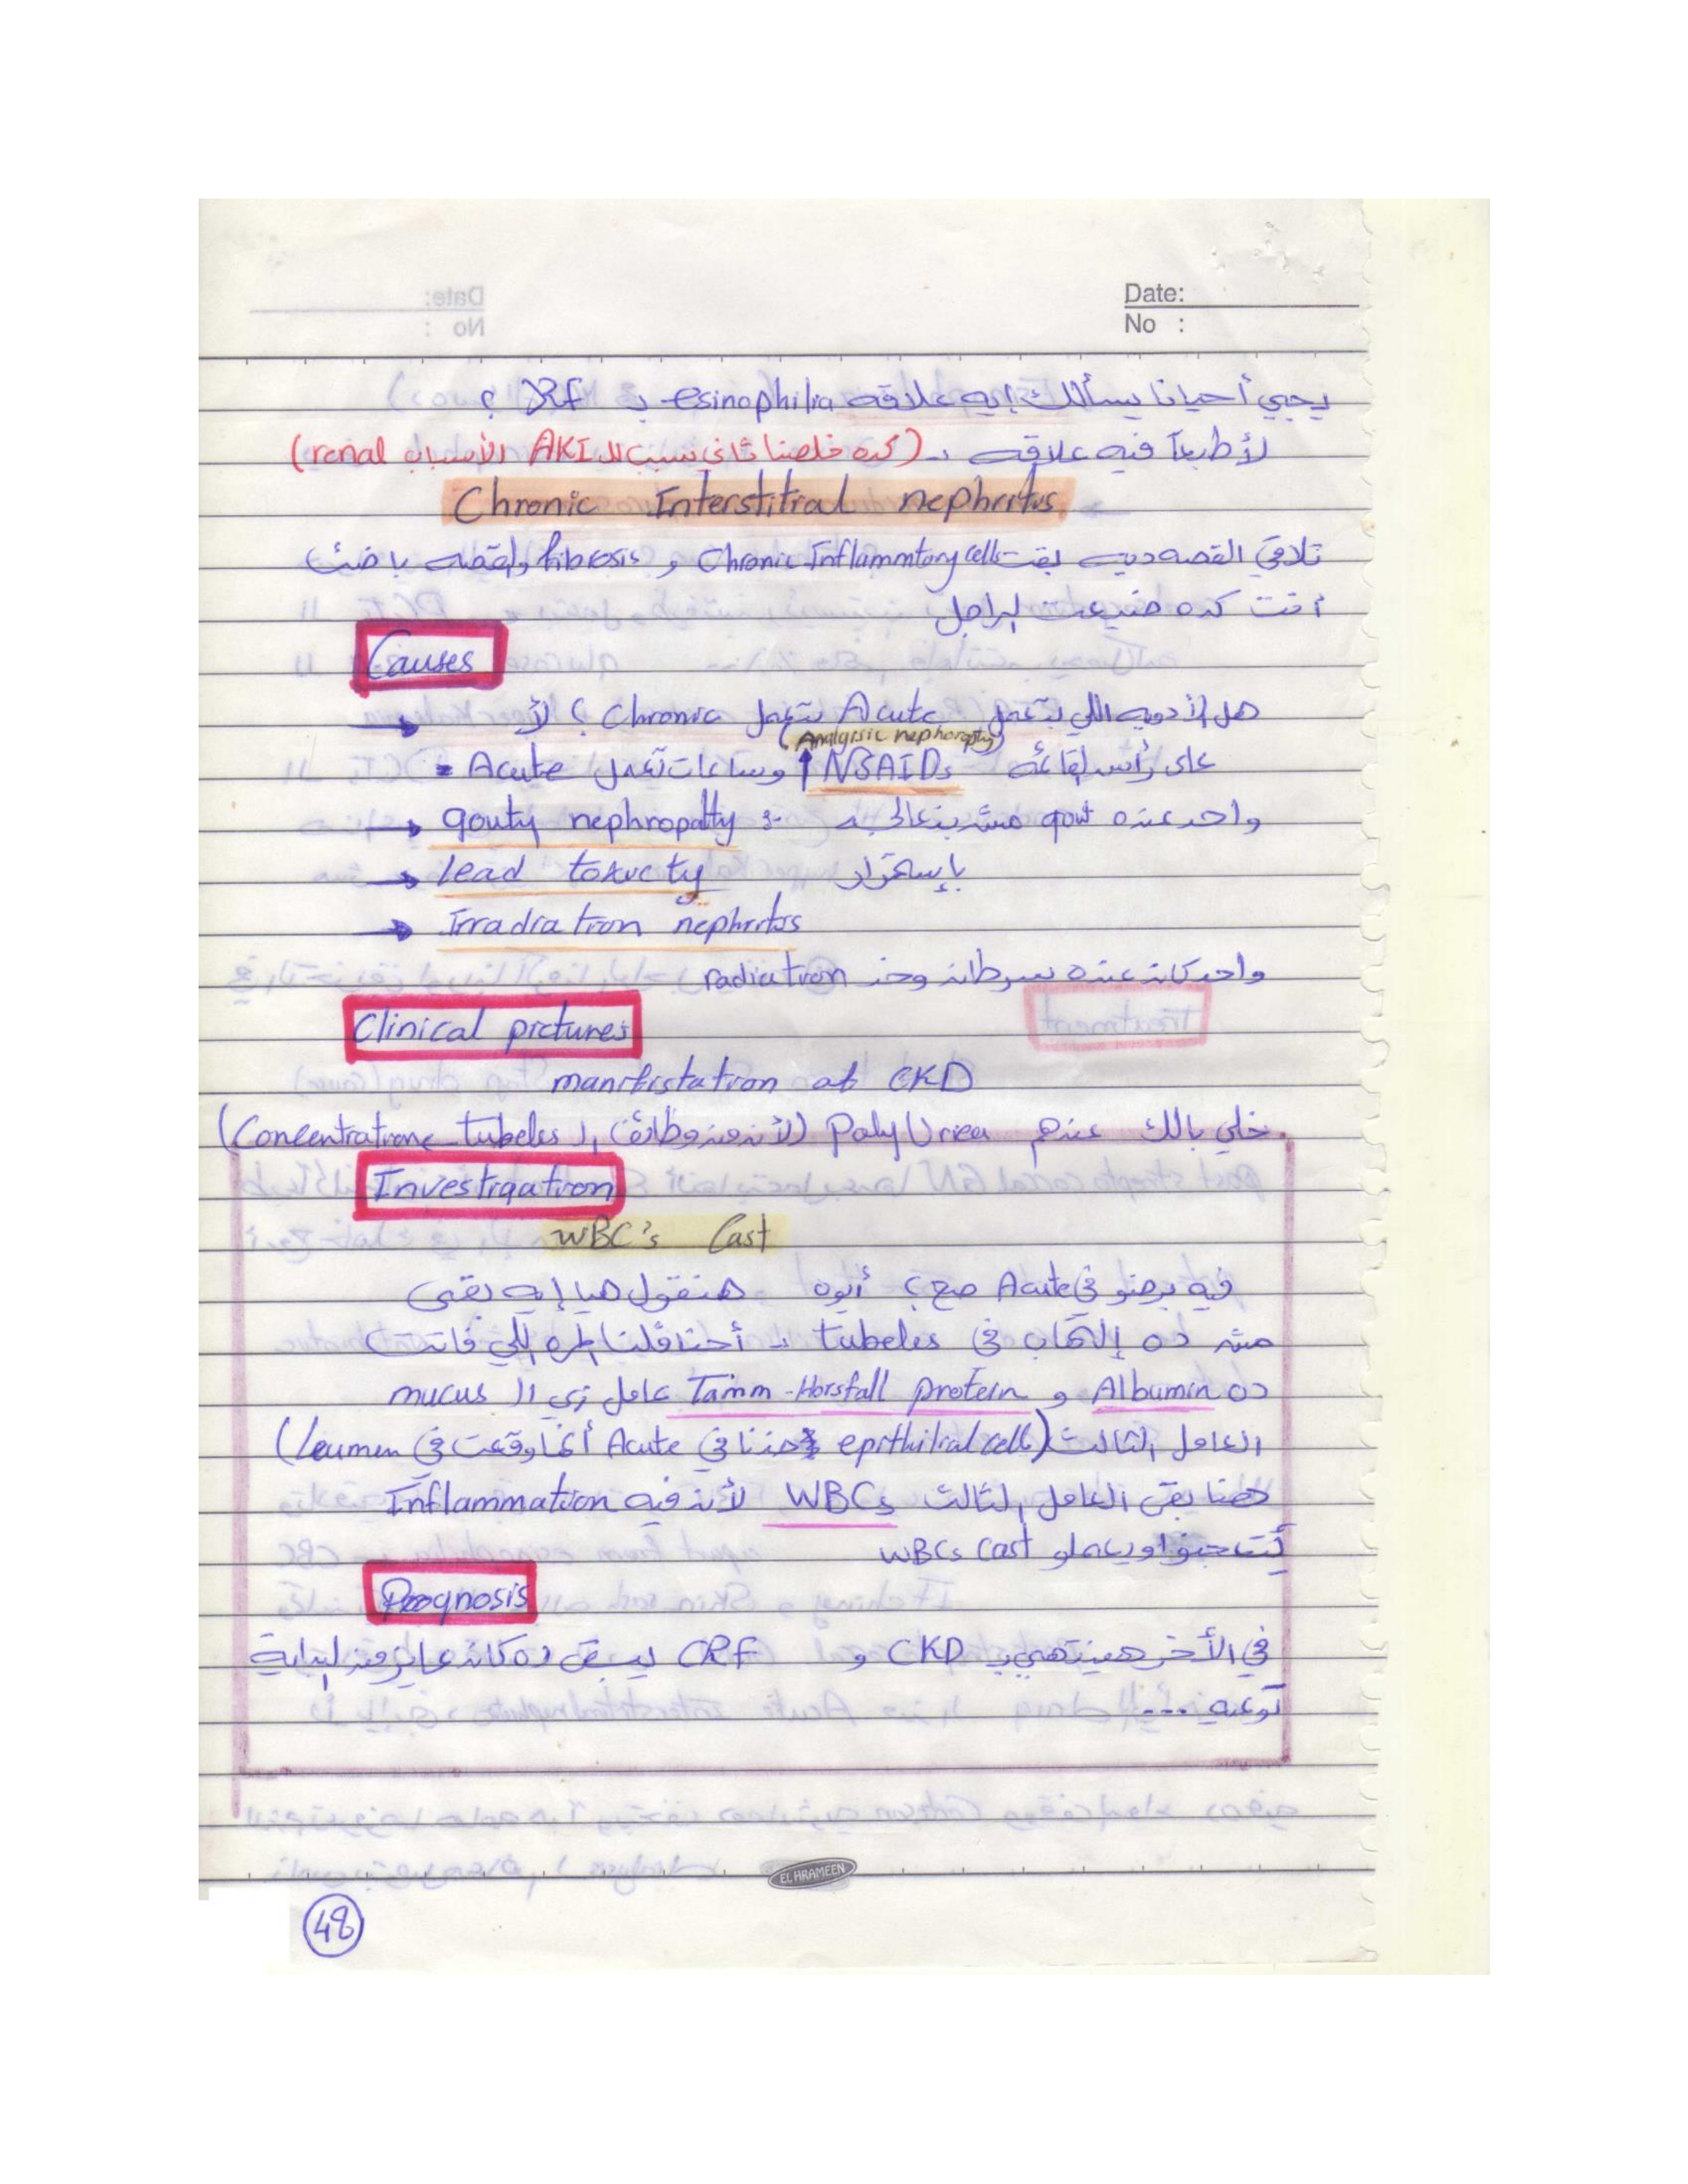 Date:
No :
يجي أحيانا يسألك إيه علاقه esinophilia بـ RF ؟
لأ طبعاً فيه علاقه .. (كده خلصنا ثاني سبب لل AKI الأسباب renal)
Chronic Interstitial nephritis
تلاقي القصه ديه بقت Chronic Inflammtory cells و fibrosis والقصه باظت
أنت كده ضيعت الراجل
Causes
هل الأدويه اللي بتعمل Acute بتعمل Chronic ؟ لأ
(Analgisic nephoropathy)
على رأس القائمه NSAIDs وساعات تعمل Acute
واحد عنده gout مش بيتعالج gouty nephropathy :-
بإستمرار lead toxicty
Irradiation nephritis
واحد كان عنده سرطان وخد radiation
Clinical pictures
manifistation of CKD
خلي بالك عندهم Poly Urea (لأن من وظائف ال tubeles Concentratione)
Investigation
WBC's Cast
فيه برضو في Acute صح ؟ أيوه هنقول هيا إيه بقى
مش ده إلتهاب في tubeles .. أحنا قلنا المره اللي فاتت
ده Albumin و Tamm-Horsfall protein عامل زي ال mucus
العامل الثالث (epithilial cells هنا في Acute أنها وقعت في leumen)
هنا بقى العامل الثالث WBCs لأن فيه Inflammation
WBCs Cast
Prognosis
في الأخر هينتهي بـ CKD و CRF يبقى ده كان عايز من البداية
توعيه ...
EL HRAMEEN
48